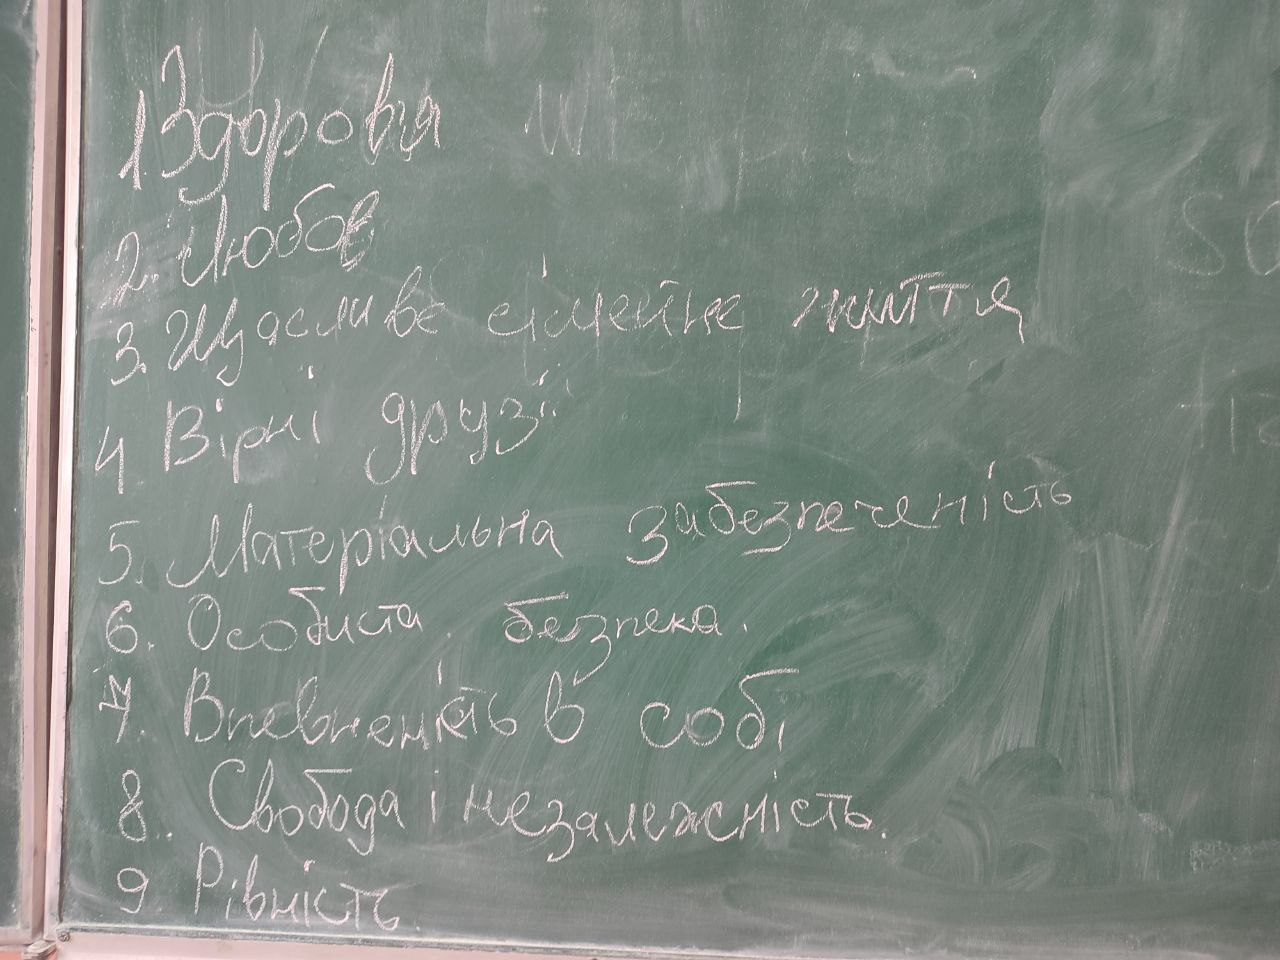 1. Здоровʼя
2. Любов
3. Щасливе сімейне життя
4 Вірні друзії
5. Матеріальна забезпеченість
6. Особиста безпека.
7. Впевненість в собі
8. Свобода і незалежність.
9 Рівність.